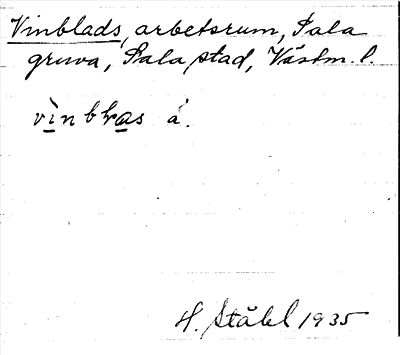 Vinblads, arbetsrum, Sala
gruva, Sala stad, Västm. l.
vìnblas á.
H. Ståhl 1935